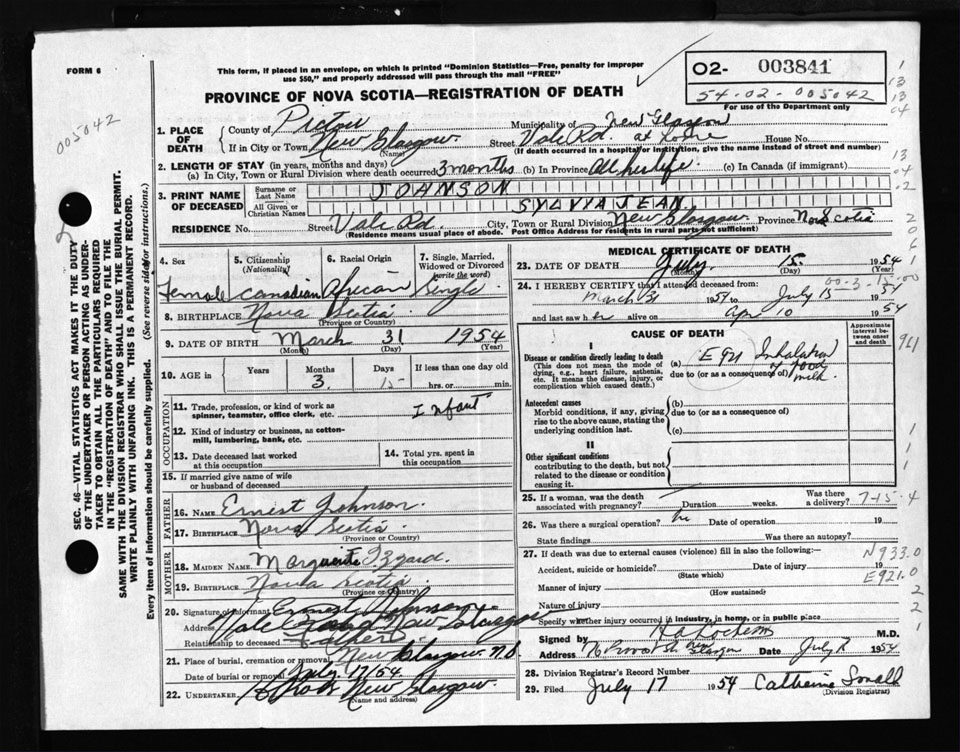 FORM 6
This form, if placed in an envelope, on which is printed "Dominion Statistics—Free, penalty for improper
use $50," and properly addressed will pass through the mail "FREE"
PROVINCE OF NOVA SCOTIA—REGISTRATION OF DEATH
O2- 003841
54-02-005042
For use of the Department only
005042
SEC. 46—VITAL STATISTICS ACT MAKES IT THE DUTY
OF THE UNDERTAKER OR PERSON ACTING AS UNDER-
TAKER TO OBTAIN ALL THE PARTICULARS REQUIRED
IN THE "REGISTRATION OF DEATH" AND TO FILE THE
SAME WITH THE DIVISION REGISTRAR WHO SHALL ISSUE THE BURIAL PERMIT.
WRITE PLAINLY WITH UNFADING INK. THIS IS A PERMANENT RECORD.
Every item of information should be carefully supplied. (See reverse side for instructions.)
1. PLACE OF DEATH County of Pictou Municipality of New Glasgow
If in City or Town New Glasgow (Name) Street Vale Rd. at home House No.
(If death occurred in a hospital or institution, give the name instead of street and number)
2. LENGTH OF STAY (in years, months and days)
(a) In City, Town or Rural Division where death occurred 3 months (b) In Province All her life (c) In Canada (if immigrant)
3. PRINT NAME OF DECEASED Surname or Last Name JOHNSON
All Given or Christian Names SYLVIA JEAN
RESIDENCE No. Street Vale Rd. City, Town or Rural Division New Glasgow Province Nova Scotia
(Residence means usual place of abode. Post Office Address for residents in rural parts not sufficient)
4. Sex Female
5. Citizenship (Nationality) Canadian
6. Racial Origin African
7. Single, Married, Widowed or Divorced (write the word) Single
8. BIRTHPLACE Nova Scotia
(Province or Country)
9. DATE OF BIRTH March 31 1954
(Month) (Day) (Year)
10. AGE in Years Months 3 Days 15 If less than one day old
hrs. or min.
OCCUPATION
11. Trade, profession, or kind of work as
spinner, teamster, office clerk, etc. Infant
12. Kind of industry or business, as cotton-
mill, lumbering, bank, etc.
13. Date deceased last worked
at this occupation
14. Total yrs. spent in
this occupation
15. If married give name of wife
or husband of deceased
FATHER
16. Name Ernest Johnson
17. Birthplace Nova Scotia
(Province or Country)
MOTHER
18. Maiden Name Marguerite Izzard
19. Birthplace Nova Scotia
(Province or Country)
20. Signature of informant Ernest Johnson
Address Vale Road New Glasgow
Relationship to deceased Father
21. Place of burial, cremation or removal New Glasgow N.S.
Date of burial or removal July 17/54
22. UNDERTAKER New Glasgow
(Name and address)
MEDICAL CERTIFICATE OF DEATH
23. DATE OF DEATH July 15 1954
(Month) (Day) (Year)
24. I HEREBY CERTIFY that I attended deceased from:
March 31 1954 to July 15 1954
and last saw her alive on Apr 10 1954
CAUSE OF DEATH
Approximate interval between onset and death
I
Disease or condition directly leading to death
(This does not mean the mode of
dying, e.g., heart failure, asthenia,
etc. It means the disease, injury, or
complication which caused death.)
(a) E921 Inhalation of food milk
due to (or as a consequence of)
Antecedent causes
Morbid conditions, if any, giving
rise to the above cause, stating the
underlying condition last.
(b)
due to (or as a consequence of)
(c)
II
Other significant conditions
contributing to the death, but not
related to the disease or condition
causing it.
25. If a woman, was the death
associated with pregnancy? Duration weeks. Was there
a delivery? 7-15-4
26. Was there a surgical operation? no Date of operation 19
State findings Was there an autopsy?
27. If death was due to external causes (violence) fill in also the following:— N933.0
Accident, suicide or homicide? (State which) Date of injury 19
E921.0
Manner of injury (How sustained)
Nature of injury
Specify whether injury occurred in industry, in home, or in public place
Signed by M.D.
Address New Glasgow Date July 1954
28. Division Registrar's Record Number
29. Filed July 17 1954 Catherine Small
(Division Registrar)